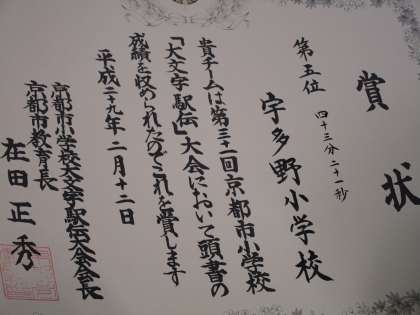 賞状
第五位 四十三分二十一秒
宇多野小学校
貴チームは第三十一回京都市小学校
「大文字駅伝」大会において頭書の
成績を収められたのでこれを賞します
平成二十九年二月十二日
京都市小学校大文字駅伝大会会長
京都市教育長
在田正秀